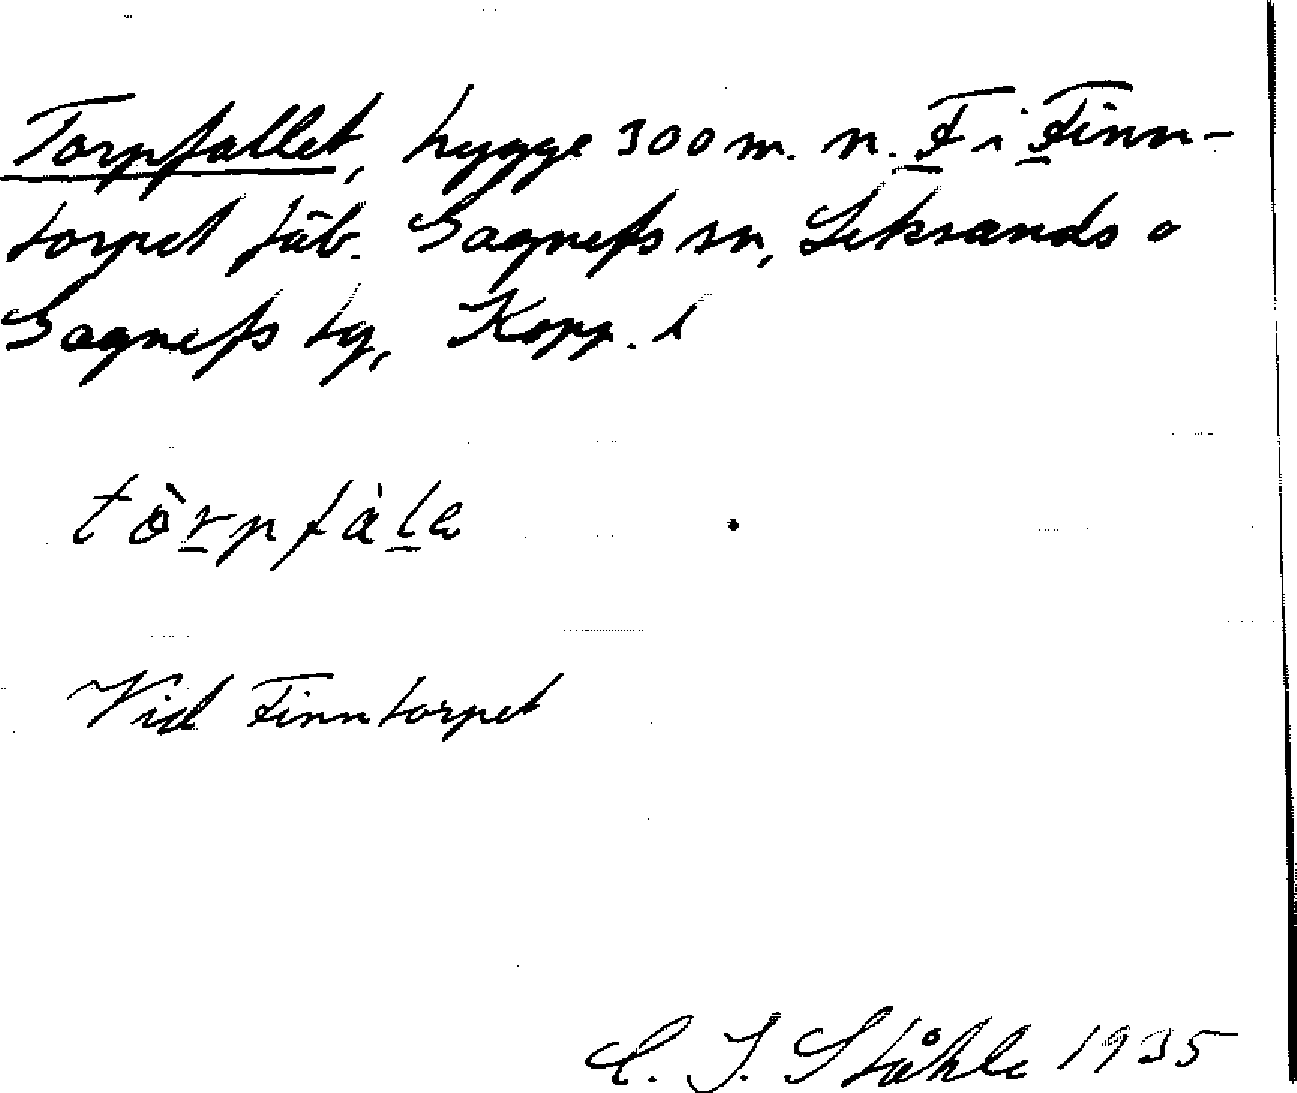 Torpfallet, hygge 300 m. n. F i Finn-
torpet fäb. Gagnefs sn, Leksands o
Gagnefs tg, Kopp. l
tòrpfàla
Vid Finntorpet
C. I. Ståhle 1935